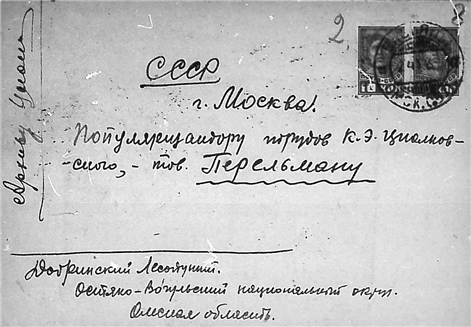 2
СССР
г. Москва.
Популяризатору трудов К. Э. Циалков-
-ского, - тов. Перельману
Архив
Добринский
Остяко-Вогульский национальный округ.
Омская область.